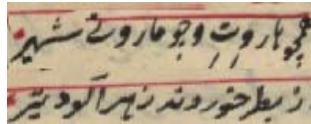 همچو هاروت و چو ماروت شهیر
ز بطر خوردند زهرآلود تیر